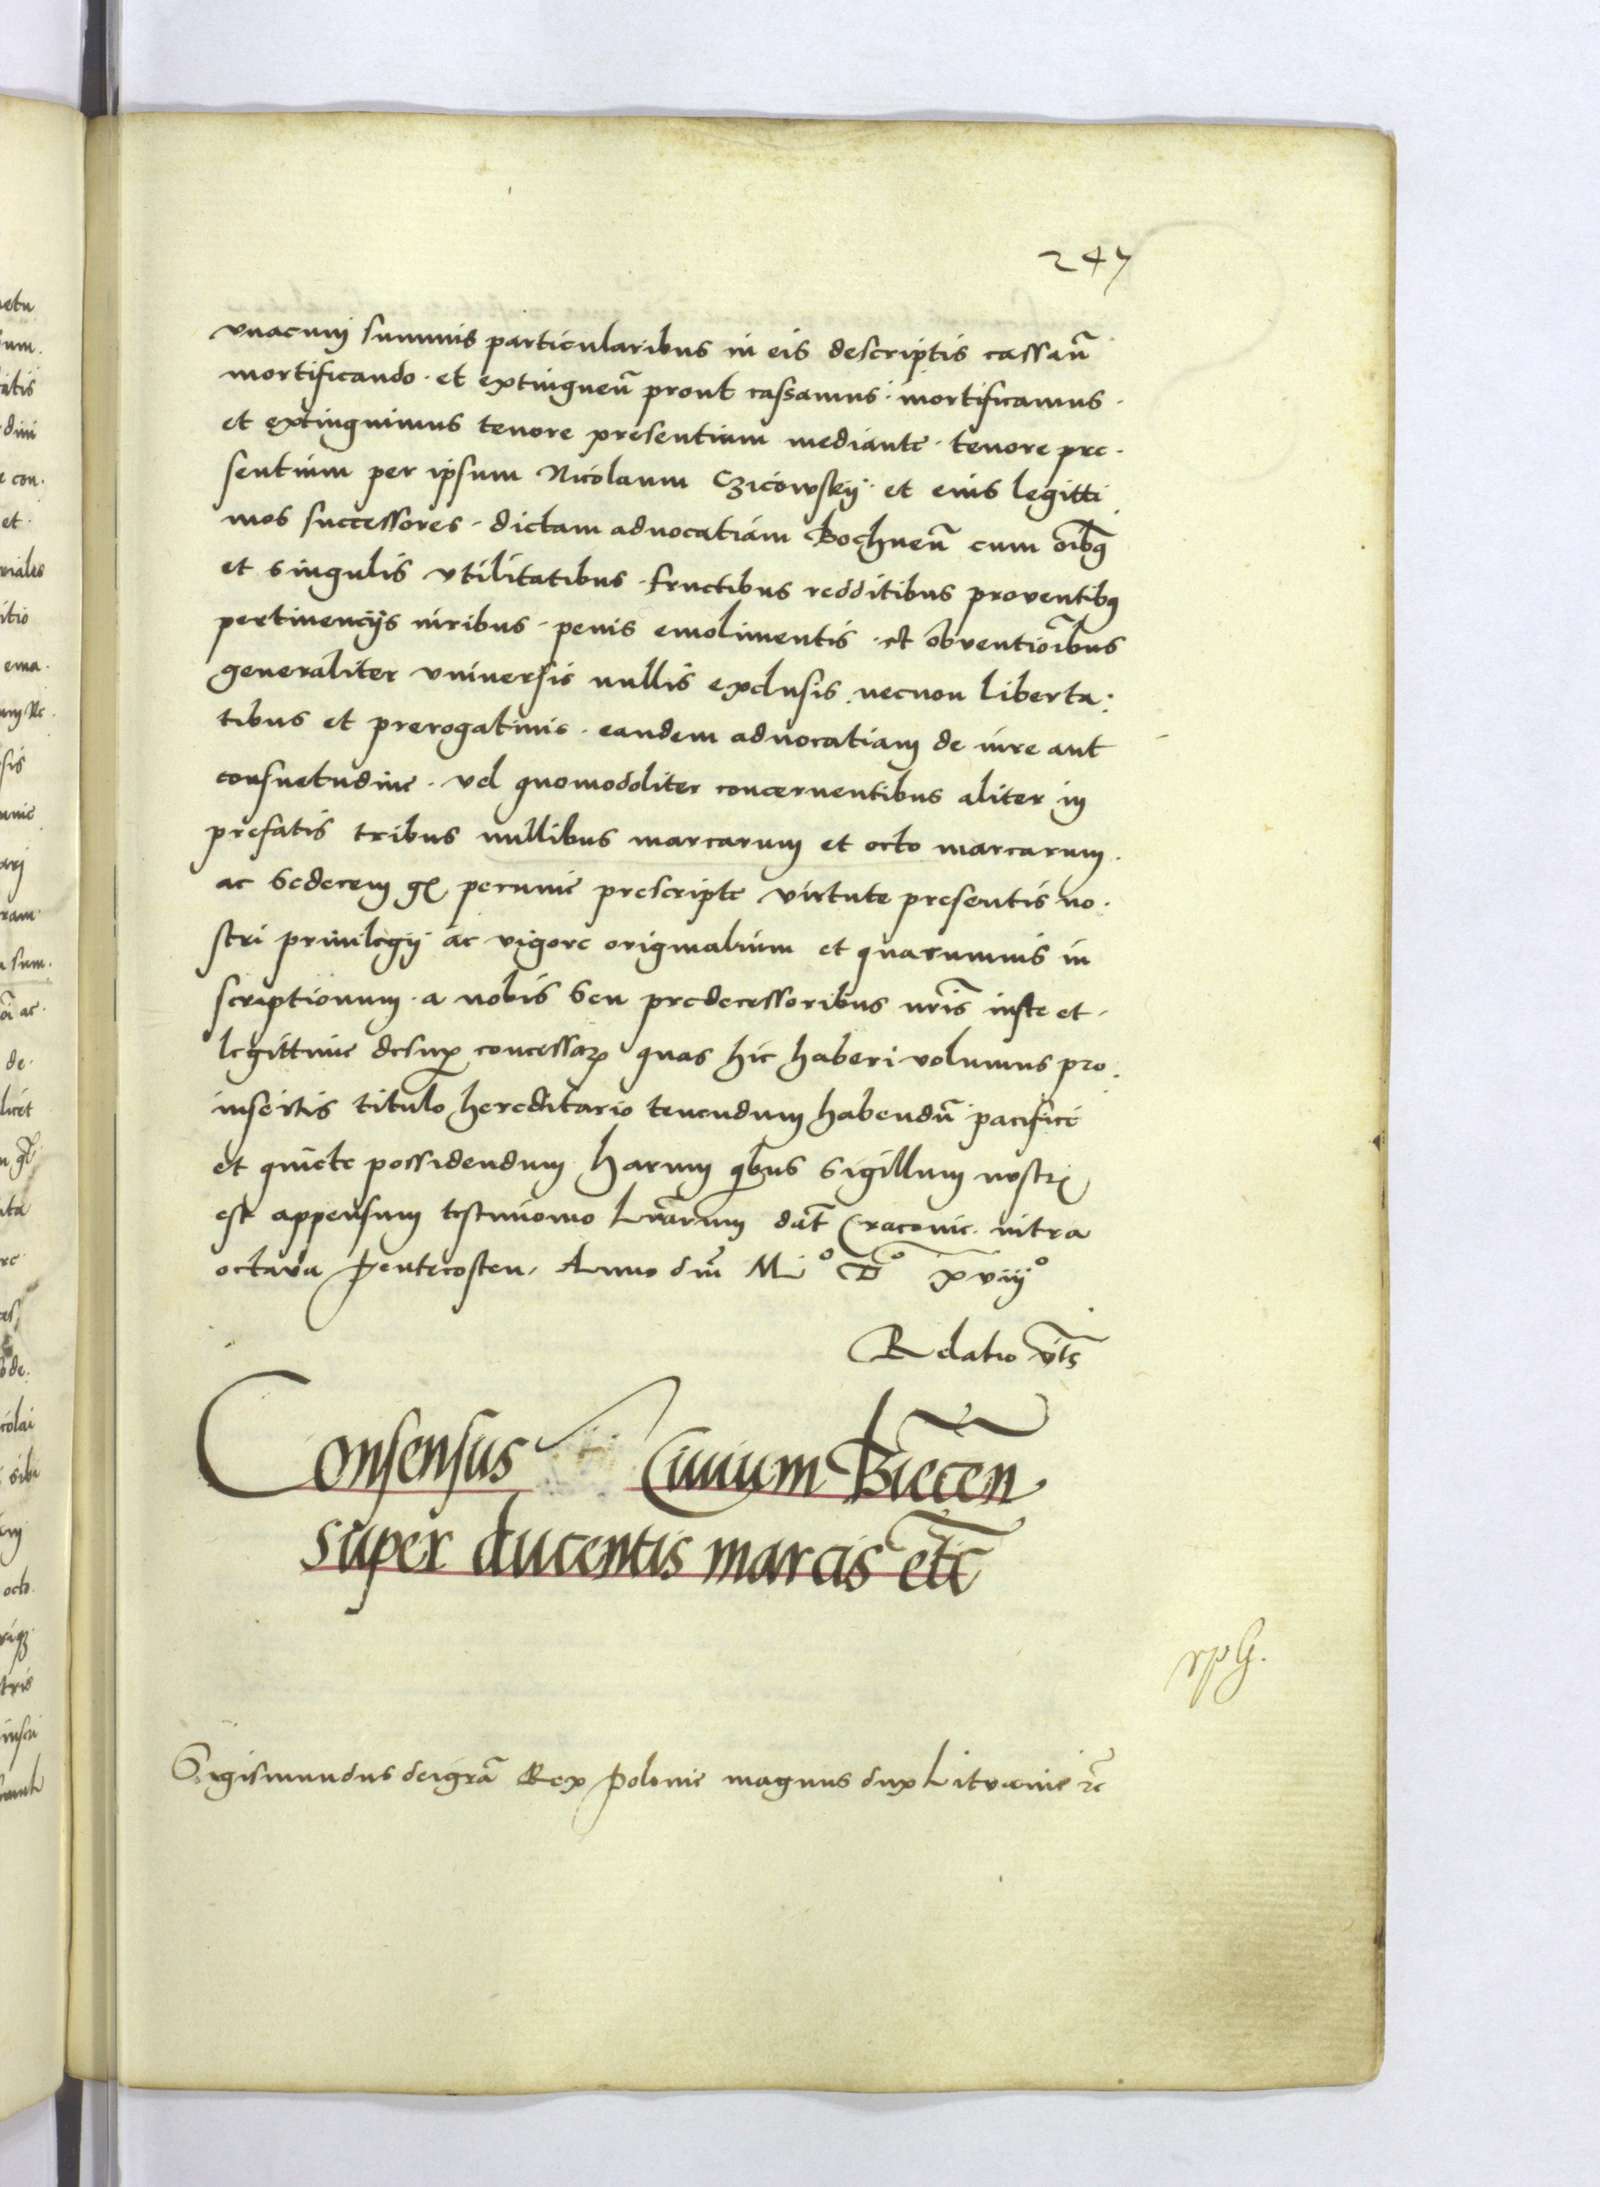 247
vnacum summis particularibus in eis descriptis cassan̄
mortificando · et extinguen̄ prout cassamus · mortificamus ·
et extinguimus tenore presentium mediante · tenore pre ·
sentium per ipsum Nicolaum Czicowskij · et eius legitti
mos successores · dictam aduocatiam Bochnen̄ cum oībꝫ
et singulis vtilitatibus · fructibus redditibus prouentibꝫ
pertinencijs iuribus · penis emolimentis · et obuentiōibus
generaliter vniuersis nullis exclusis · necnon liberta :
tibus et prerogatiuis · eandem aduocatiam de iure aut
consuetudine · vel quomodoliter concernentibus aliter in
prefatis tribus millibus marcarum et octo marcarum ·
ac sedecem gꝭ pecunie prescripte virtute presentis no ·
stri priuilegij ac vigore originalium et quarumuis in
scriptionum · a nobis seu predecessoribus nr̄is iuste et ·
legittime desuꝑ concessaꝝ quas hic haberi volumus pro :
insertis titulo hereditario tenendum habendū pacifice
et quiete possidendum harum qbus sigillum nostrꝭ
est appensum testimonio lr̄arum dat̄ Cracouie · intra
octaua Pentecosten · Anno dnī M° D° xviij°
Relatio vt̄s
Consensus Ciuium Biecen̄
super ducentis marcis etc̄
Sigismundus dei gr̄a Rex Polonie magnus dux Lituanie ⁊c̄